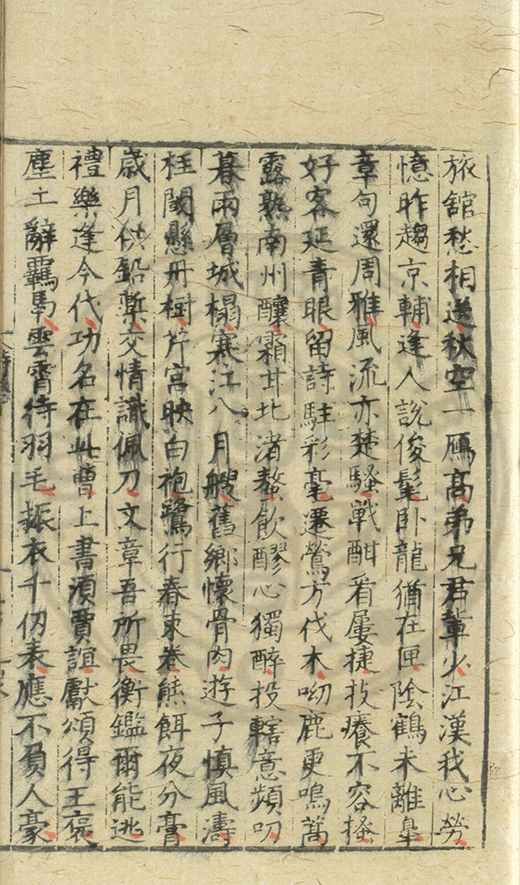 旅舘愁相送秋空一鴈髙弟兄君軰少江漢我心勞
憶昨趨京輔逢人説俊髦卧龍猶在匣陰鶴未離臯
章句還周雅風流亦楚騷戰酣看屢捷技癢不容搔
好客延青眼留詩駐彩毫遷鶯方伐木呦鹿更鳴蒿
露熟南州釀霜甘北渚螯飲醪心獨醉投轄意頻叨
暮雨層城榻寒江八月艘舊鄉懷骨肉遊子慎風濤
桂閾懸丹樹芹宮映白袍鷺行春束卷熊餌夜分膏
歲月供鉛槧交情識佩刀文章吾所畏衡鑑爾能逃
禮樂逢今代功名在此曹上書須賈誼獻頌得王褒
塵土辭羈馬雲霄待羽毛振衣千仞表應不負人豪